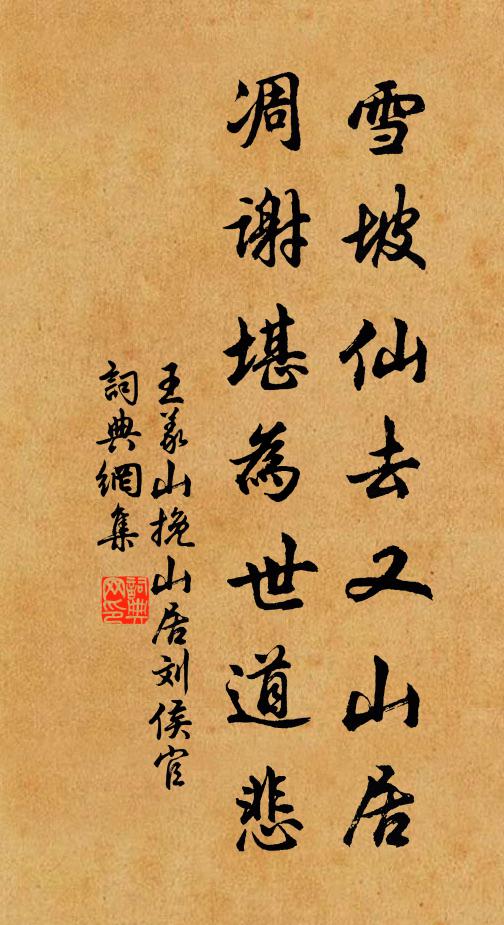 雪坡仙去又山居
凋谢堪為世道悲
王義山挽山居刘侯官
詞典網集
詞典網印